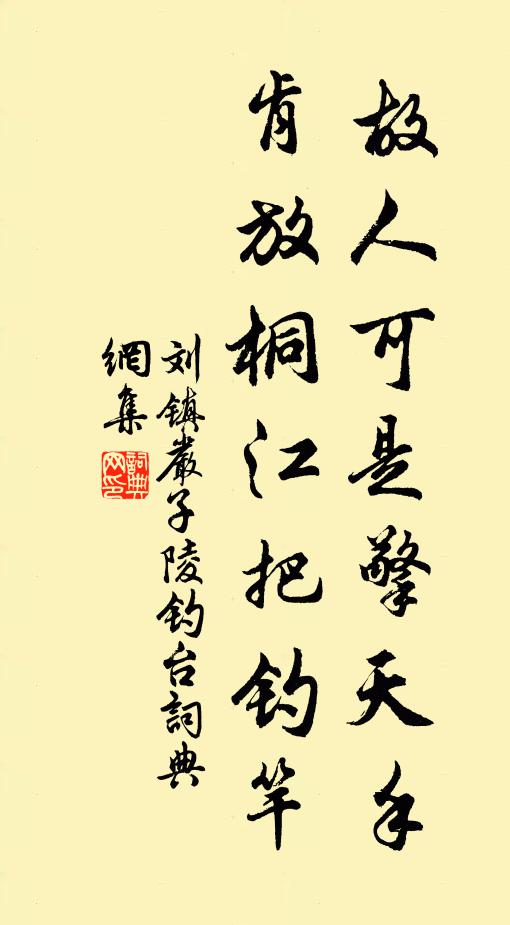 故人可是擎天手
肯放桐江把钓竿
刘镇嚴子陵钓台詞典
網集
詞典网印